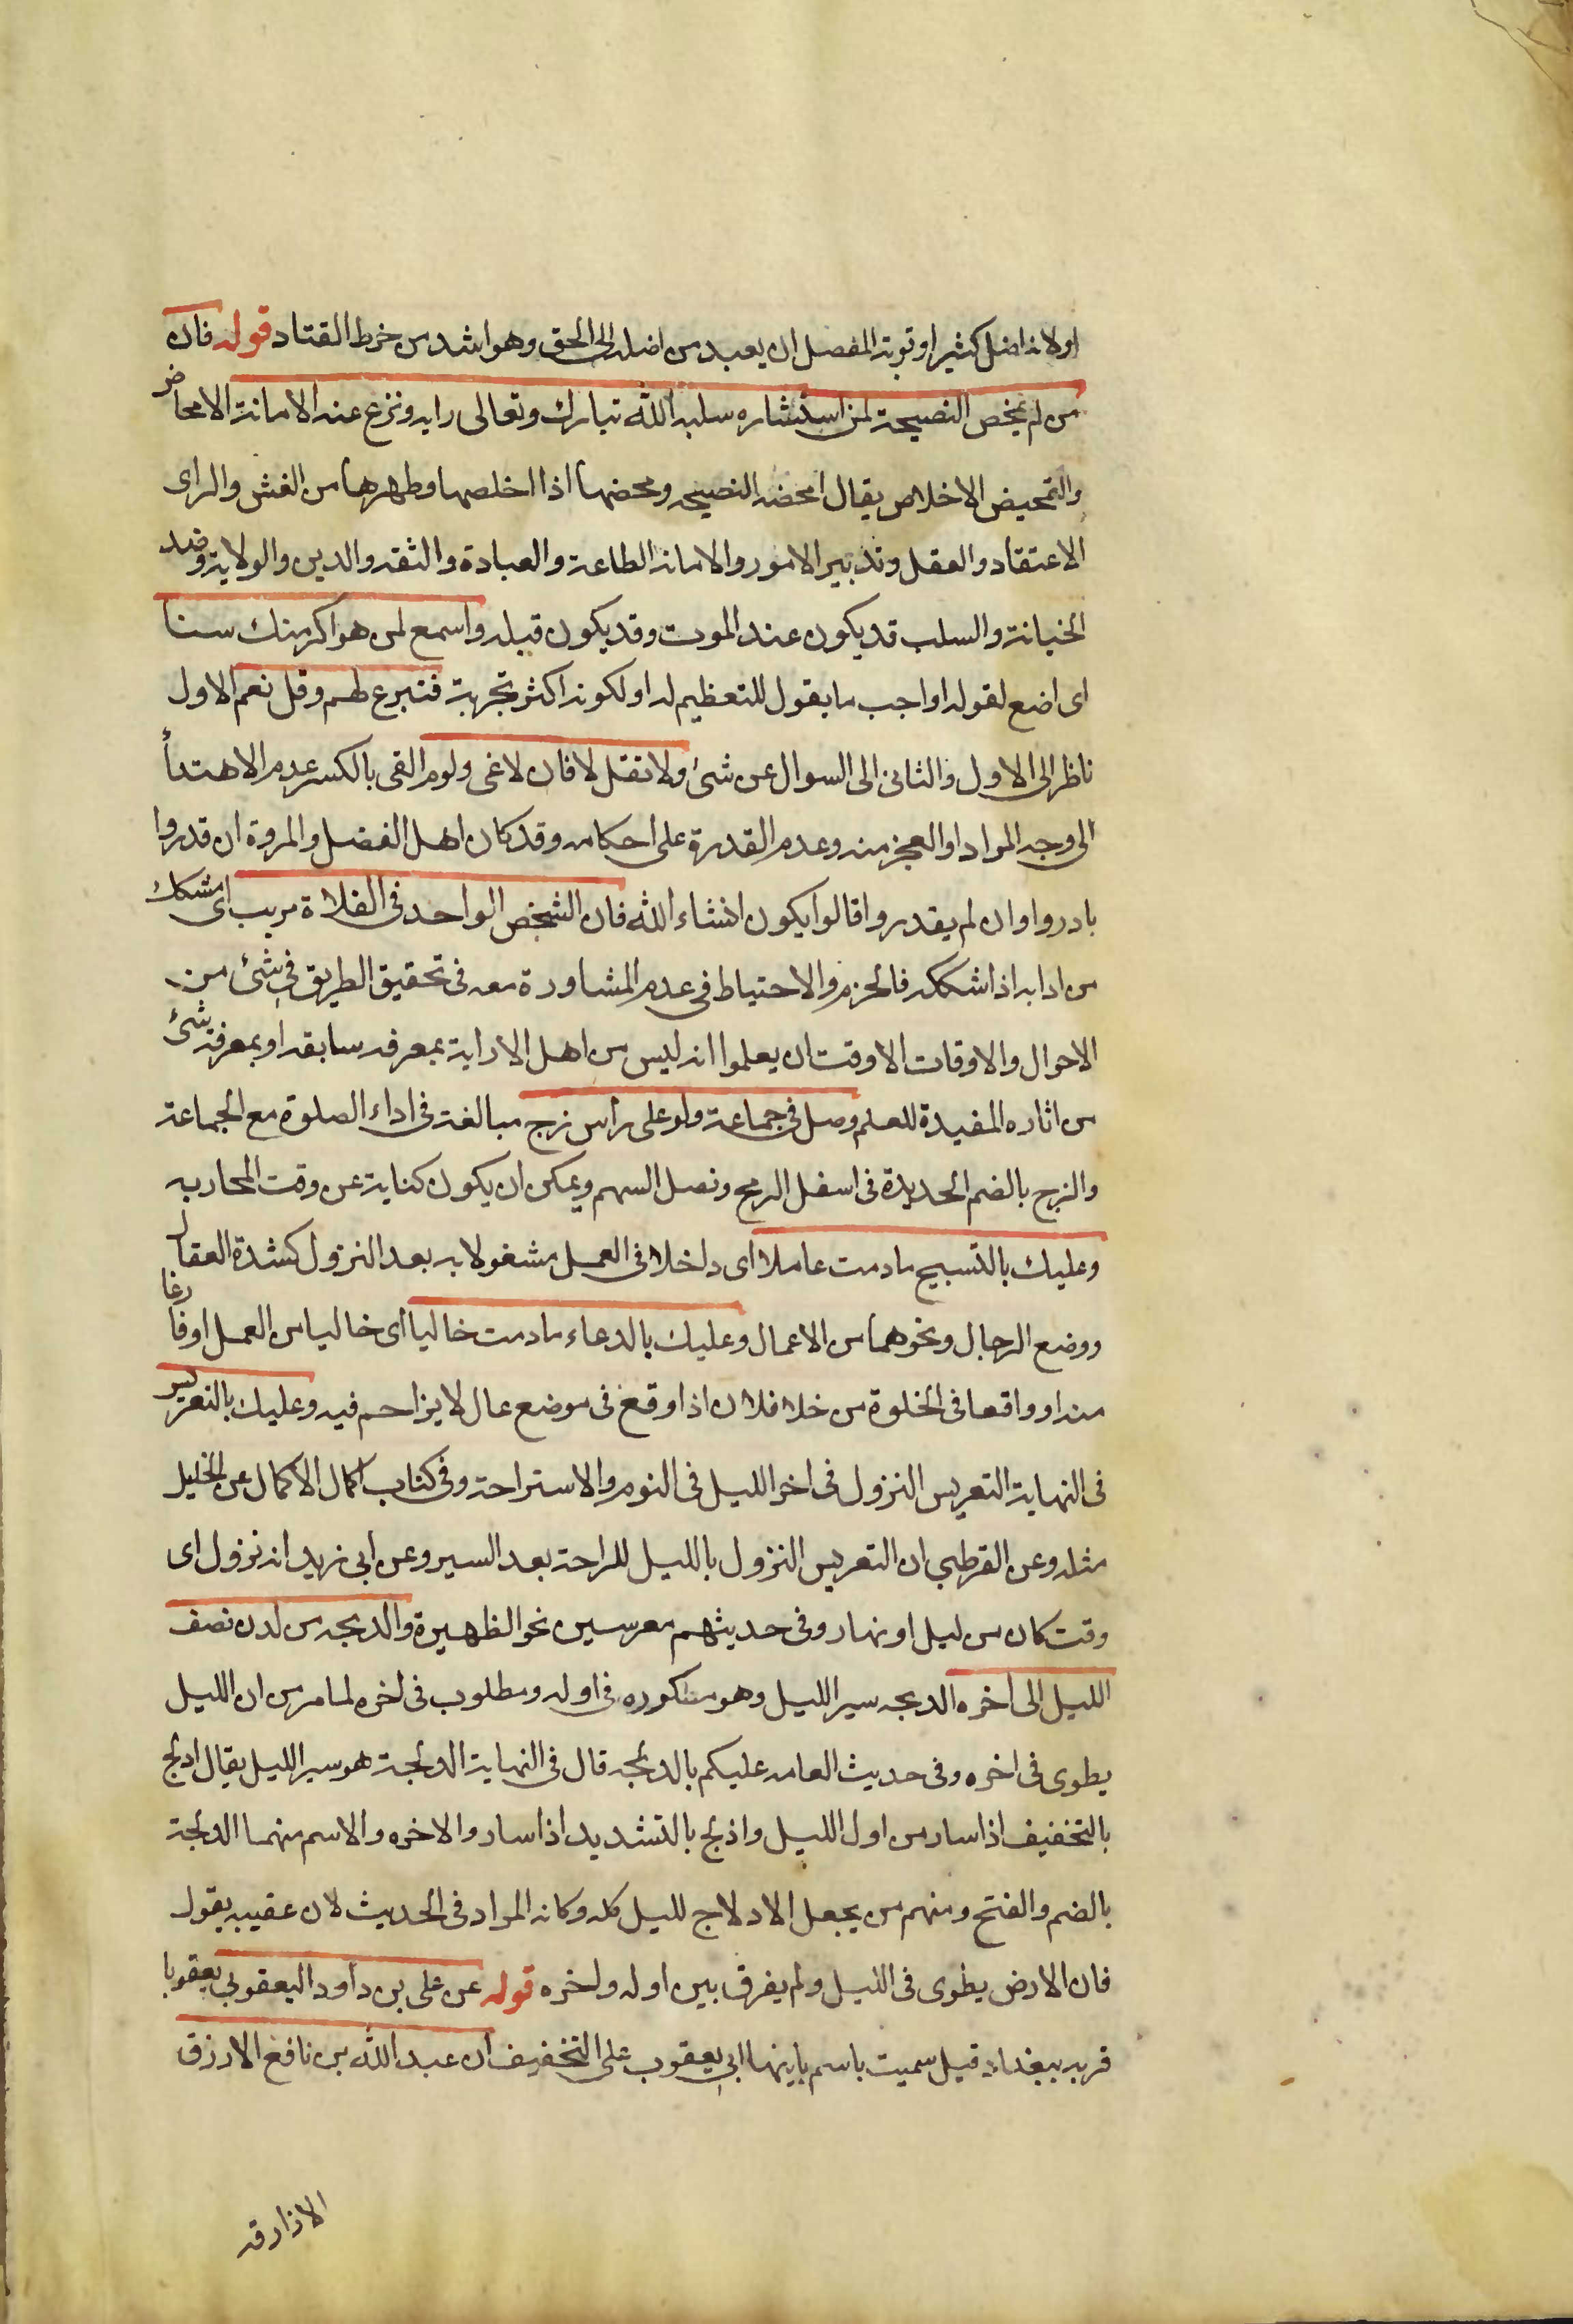 اولانه اضل كثيرا وتوبة المفصل ان يعبد من اضله الى الحق وهو اشد من خرط القتاد قوله فان
من لم يمخض النصيحة لمن استشاره سلبه الله تبارك وتعالى رايه ونزع عنه الامانة الامحاض
والتمحيض الاخلاص يقال امحضه النصيحه ومحضها اذا اخلصها وطهرها من الغش والراى
الاعتقاد والعقل وتدبير الامور والامانه الطاعة والعبادة والثقه والدين والولاية وضد
الخيانة والسلب قد يكون عند الموت وقد يكون قبله واسمع لمن هو اكبر منك سنا
اى اضع لقوله او اجب ما يقول للتعظيم له او لكونه اكثر تجربة فتبرع لهم وقل نعم الاول
ناظر الى الاول والثانى الى السوال عن شئ ولا تقل لا فان لا عى ولوم القى بالكسر عدم الاهتدأ
الى وجه المراد او العجز منه وعدم القدرة على احكامه وقد كان اهل الفضل والمروة ان قدروا
بادروا وان لم يقدروا قالوا يكون انشاء الله فان الشخص الواحد فى الفلاة مريب اى مشكك
من ادابه اذا شككه فالحزم والاحتياط فى عدم المشاورة معه فى تحقيق الطريق فى شئ من
الاحوال والاوقات الا وقت ان يعلموا انه ليس من اهل الاراية بمعرفه سابقه او بمعرفة شئ
من اثاره المفيدة للعلم وصل فى جماعة ولو على راس زج مبالغة فى اداء الصلوة مع الجماعة
والزج بالضم الحديدة فى اسفل الرمح ونصل السهم ويمكن ان يكون كناية عن وقت المحاربه
وعليك بالتسبيح ما دمت عاملا اى داخلا فى العمل مشغولا به بعد النزول كشدة العقال
ووضع الرحال ونحوهما من الاعمال وعليك بالدعاء ما دمت خاليا اى خاليا من العمل او فارغا
منه او واقعا فى الخلوة من خلا فلان اذا وقع فى موضع عال لا يزاحم فيه وعليك بالتعريس
فى النهاية التعريس النزول فى اخر الليل فى النوم والاستراحة وفى كتاب اكمال الاكمال عن الخليل
مثله وعن القرطبي ان التعريس النزول بالليل للراحة بعد السير وعن ابى زيد انه نزول اى
وقت كان من ليل او نهار وفى حديثهم معرسين نحو الظهيرة والدلجه من لدن نصف
الليل الى اخره الدلجه سير الليل وهو متكوره فى اوله ومطلوب فى اخره لما مر من ان الليل
يطوى فى اخره وفى حديث العامه عليكم بالدلجه قال فى النهاية الدلجة هو سير الليل يقال ادلج
بالتخفيف اذا سار من اول الليل واذلج بالتشديد اذا سار والاخره والاسم منهما الدلجة
بالضم والفتح ومنهم من يجعل الادلاج لليل كله وكانه المراد فى الحديث لان عقيبه يقول
فان الارض يطوى فى الليل ولم يفرق بين اوله واخره قوله عن على بن داود اليعقوبي يعقوبا
قريه ببغداد قيل سميت باسم بانيها ابى يعقوب على التخفيف ان عبد الله بن نافع الارزق
الازارقه